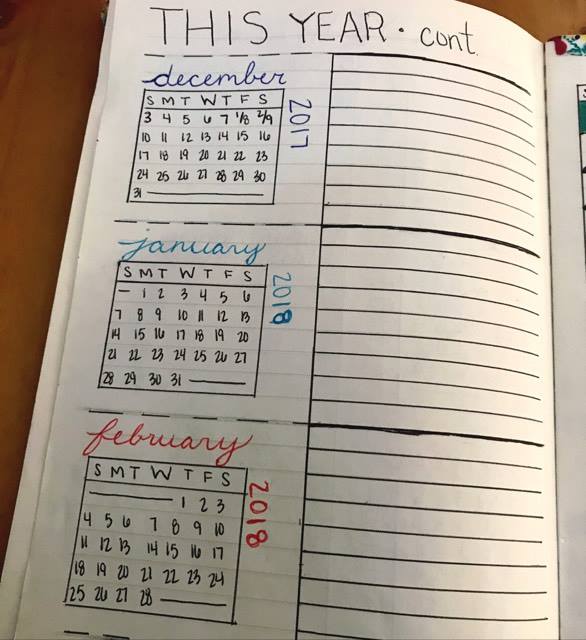 THIS YEAR · cont.
december
S M T W T F S
3 4 5 6 7 1/8 2/9
10 11 12 13 14 15 16
17 18 19 20 21 22 23
24 25 26 27 28 29 30
31
2017
january
S M T W T F S
1 2 3 4 5 6
7 8 9 10 11 12 13
14 15 16 17 18 19 20
21 22 23 24 25 26 27
28 29 30 31
2018
february
S M T W T F S
1 2 3
4 5 6 7 8 9 10
11 12 13 14 15 16 17
18 19 20 21 22 23 24
25 26 27 28
2018